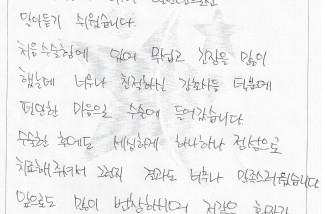 믿어주기 쉬웠습니다.
처음 수술첨에 있어 무섭고 긴장을 많이
했는데 너무나 친절하신 간호사들 덕분에
편안한 마음으로 수술에 들어갔습니다
수술한 후에도 세심하게 하나하나 정성으로
치료해 주셔서 그런지 결과도 너무나 만족스러웠습니다
앞으로도 많이 번창하시어 저같은 환자가